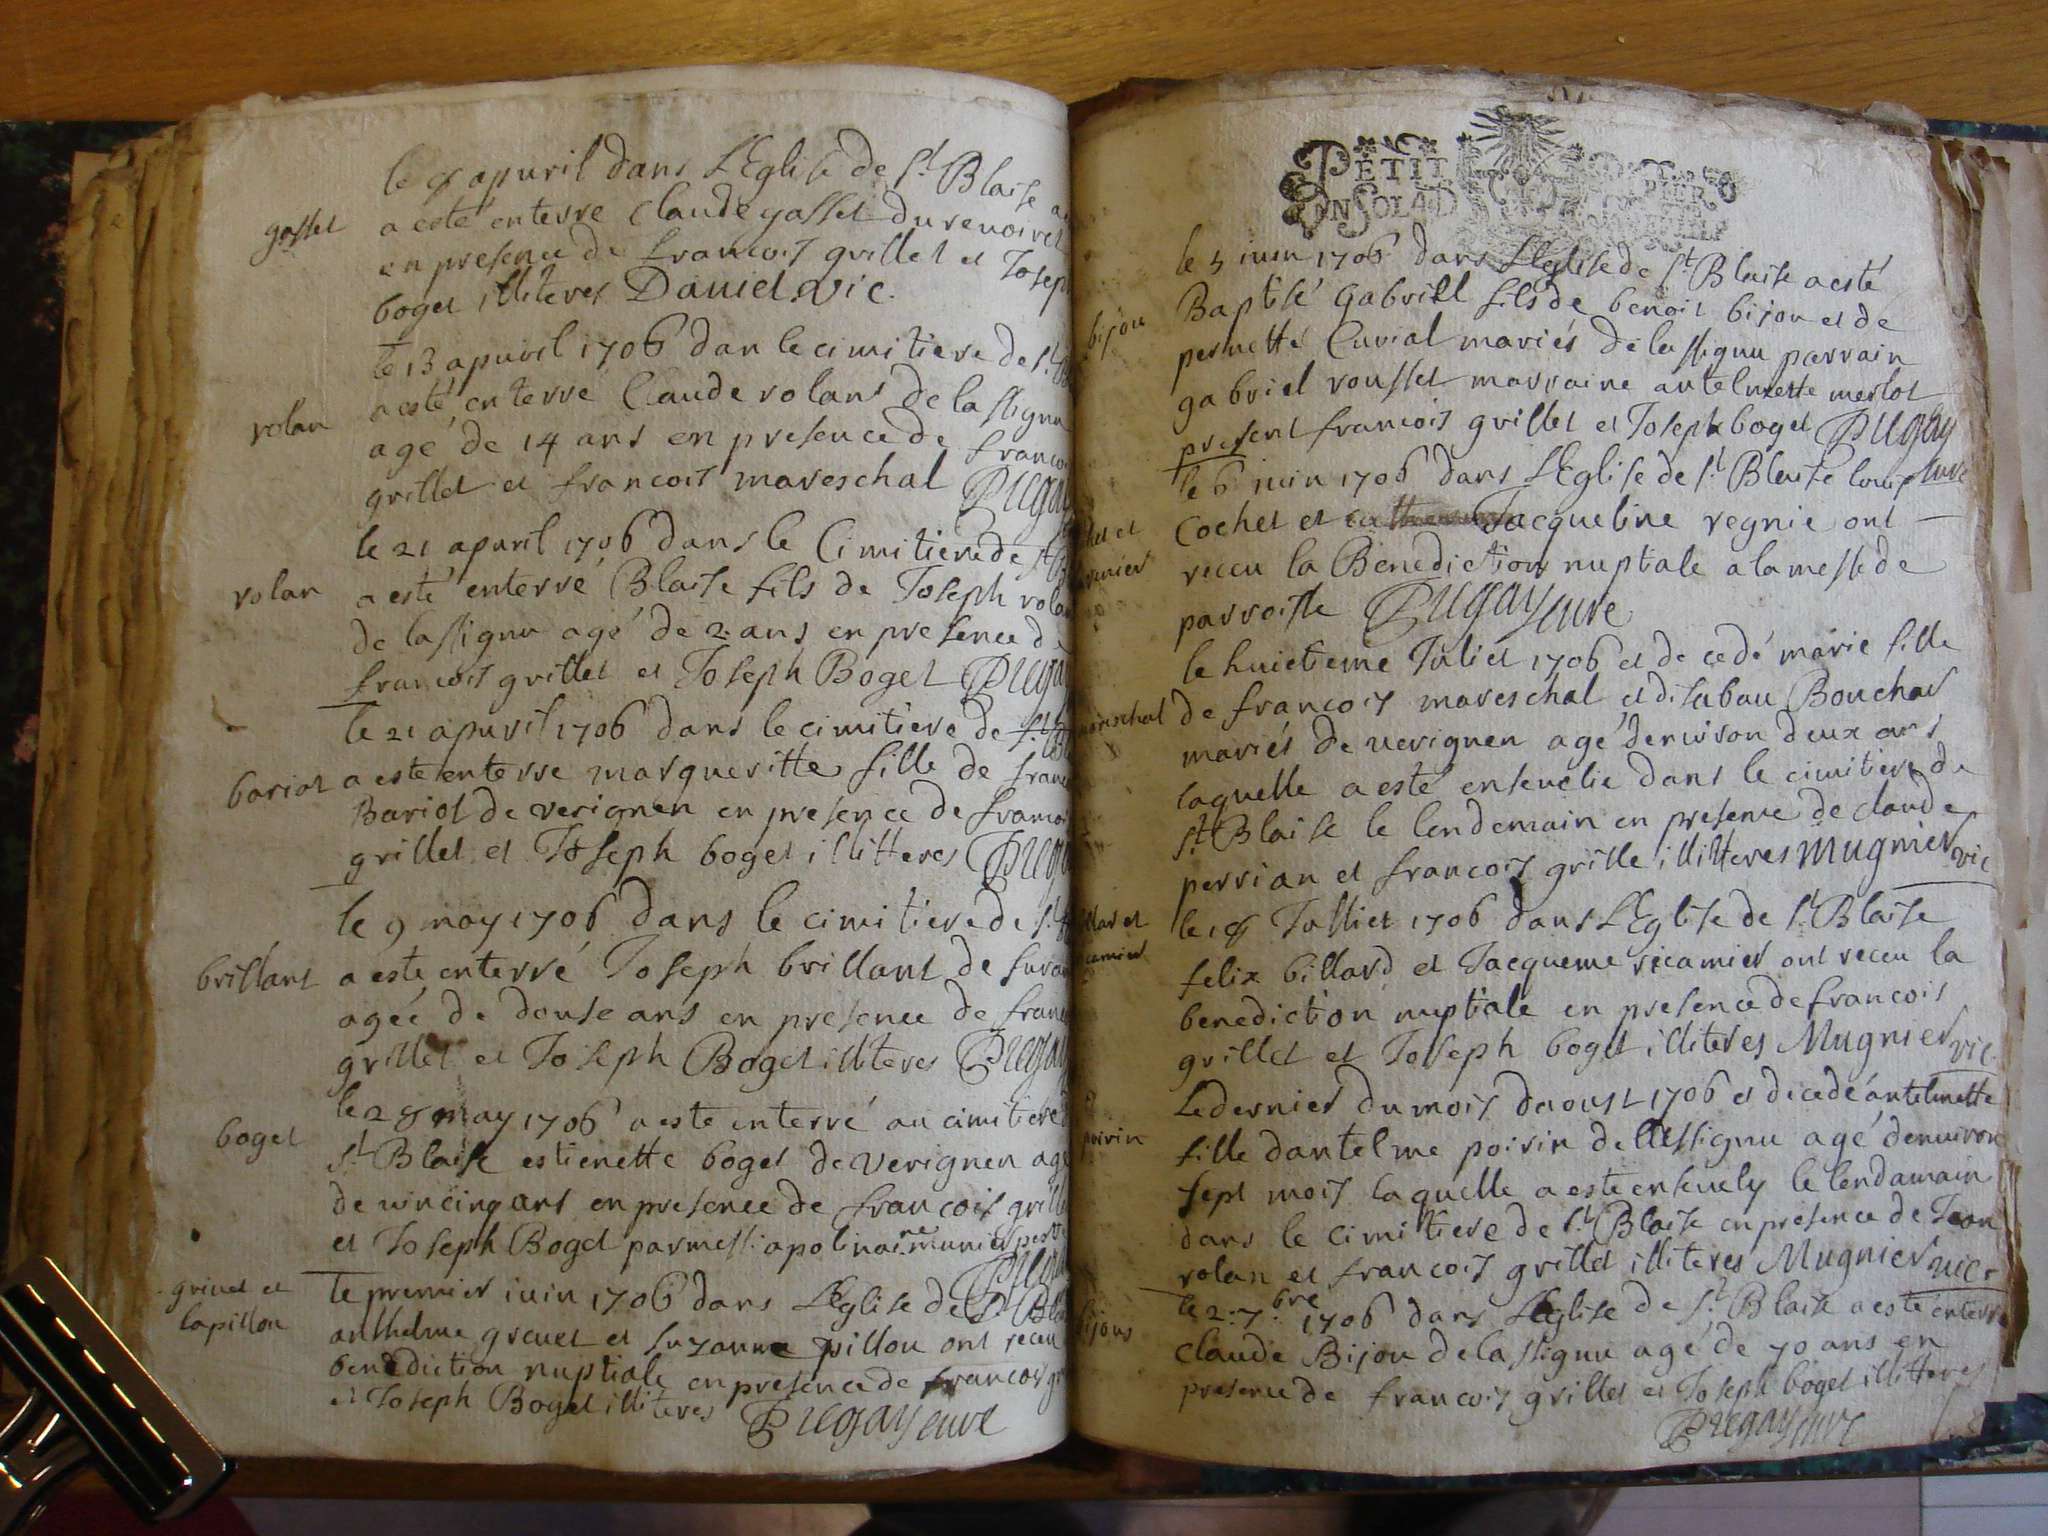 le 8 apuril dans LEglise de St Blaise a
gasset
a esté enterre Claude gasset du renoiret
en presence de francois grillet et Joseph
boget illiteres Daniel vic.
le 13 apuril 1706 dan le cimitiere de St
rolan
a esté enterré Claude rolans de lassignu
agé de 14 ans en presence de
grillet et francois mareschal Pugay
le 21 apuril 1706 dans le Cimitiere de St
rolan
a esté enterré Blaise fils de Joseph
de lassignu agé de 2 ans en presence de
francois grillet et Joseph Boget
le 21 apuril 1706 dans le cimitiere de St
bariot
a este enterre margueritte fille de
Bariot de verignen en presence de
grillet et Joseph boget illitteres
le 9 may 1706 dans le cimitiere de St
brillant
a este enterré Joseph brillant de
ageé de douse ans en presence de
grillet et Joseph Boget illiteres
le 28 may 1706 a este enterré au cimitiere
boget
St Blaise estienette boget de verignen
de en presence de francois
et Joseph Boget par messi apolinaire munier
grinet et
lapillon
le premier iuin 1706 dans LEglise de St
anthelme greuet et suzanne pillon ont receu
benediction nuptiale en presence de francois
et Joseph Boget illiteres Pugay cure
PETIT PAPIER
le 5 iuin 1706 dans LEglise de St Blaise a esté
bijou
Baptisé Gabriell fils de benoit bijou et de
pernette Cuvial mariés de lassignu parrain
gabriel rousset marraine antelmette merlot
present francois grillet et Joseph boget Pugay
cure
le 6 iuin 1706 dans LEglise de St Blaise
cochet et Jacqueline regnie ont
receu la Benediction nuptiale a la messe de
parroisse Pugay cure
le huietieme Juliet 1706 et decedé marie fille
mareschal
de francois mareschal et disabau Bouchar
mariés de verignen agé denviron deux ans
laquelle a esté ensevelie dans le cimitiere de
St Blaise le lendemain en presence de claude
perrian et francois grille illitteres Mugnier vic
le 18 Julliet 1706 dans LEglise de St Blaise
felix billard et Jacqueme ricamier ont receu la
benediction nuptiale en presence de francois
grillet et Joseph boget illiteres Mugnier vic.
Le dernier du mois daoust 1706 et decedé antelmette
poirin
fille dantelme poirin de lassignu agé denuiron
sept mois laquelle a este ensevely le lendamain
dans le cimitiere de St Blaise en presence de Jean
rolan et francois grillet illiteres Mugnier vic.
le 2 7bre 1706 dans LEglise de St Blaise a esté enterre
bijous
claude Bijou de lassignu agé de 70 ans en
presence de francois grillet et Joseph boget illitteres
Pugay cure